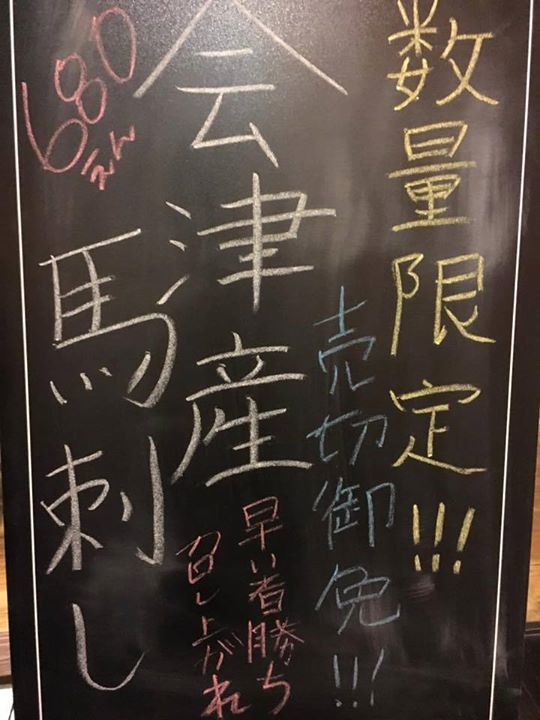 数量限定!!!
売切御免!!!
会津産
馬刺し
680えん
早い者勝ち
召し上がれ